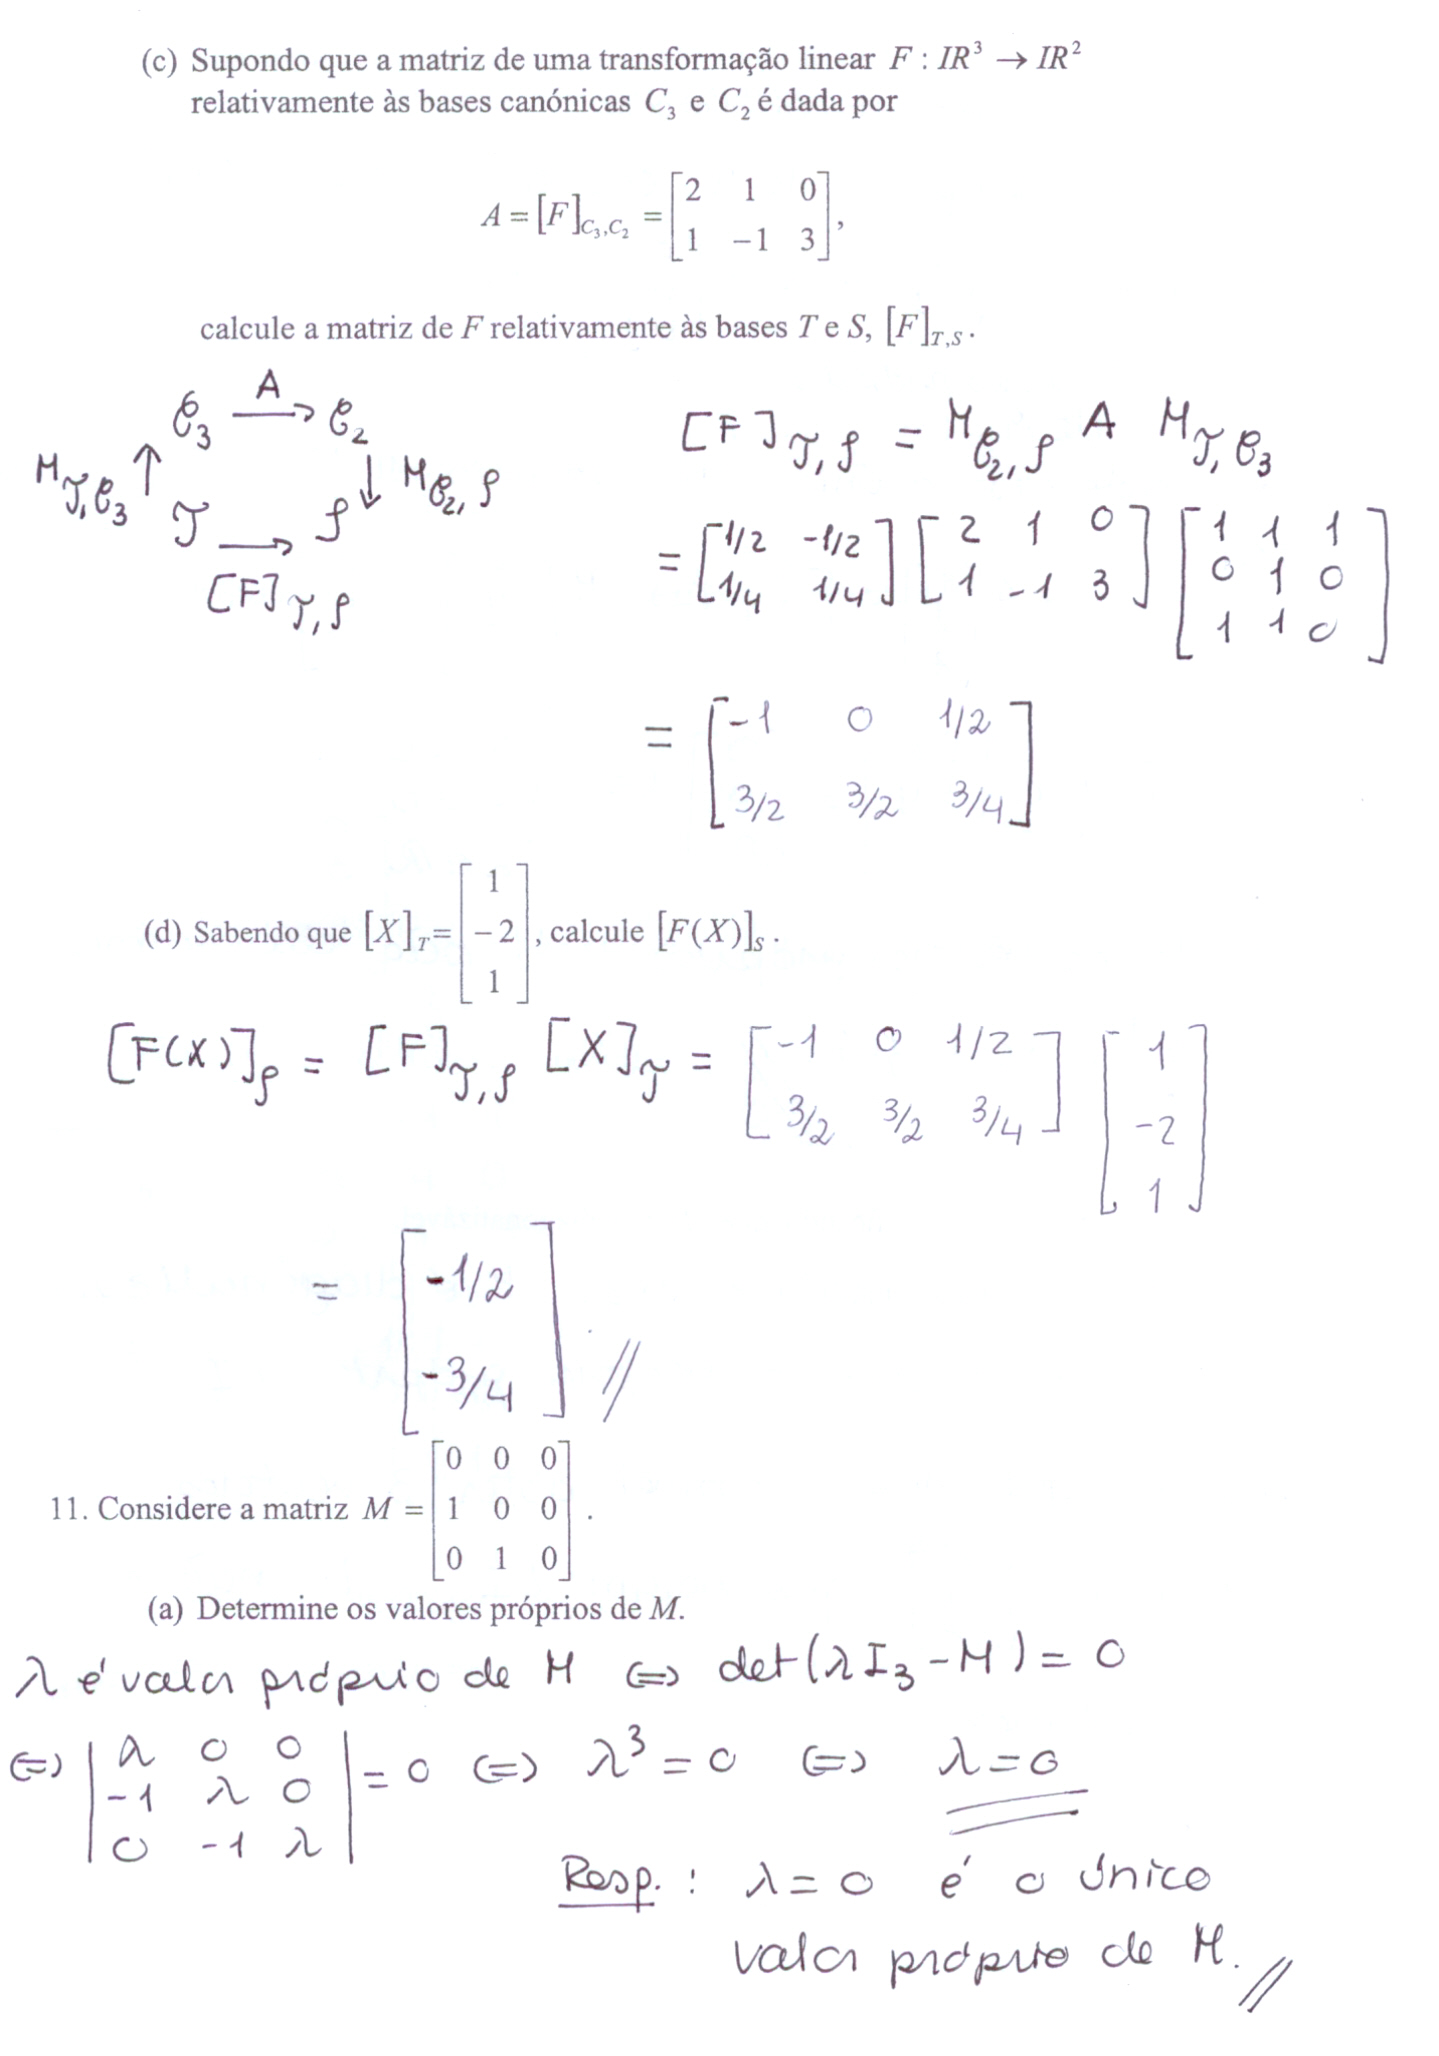 (c) Supondo que a matriz de uma transformação linear F : IR³ → IR²
relativamente às bases canónicas C₃ e C₂ é dada por
A = [F]_{C₃,C₂} = [2 1 0; 1 −1 3],
calcule a matriz de F relativamente às bases T e S, [F]_{T,S}.
C₃ —A→ C₂
M_{T,C₃} ↑ ↓ M_{C₂,S}
T → S
[F]_{T,S}
[F]_{T,S} = M_{C₂,S} A M_{T,C₃}
= [1/2 -1/2; 1/4 1/4] [2 1 0; 1 -1 3] [1 1 1; 0 1 0; 1 1 0]
= [-1 0 1/2; 3/2 3/2 3/4]
(d) Sabendo que [X]_T = [1; −2; 1], calcule [F(X)]_S.
[F(X)]_S = [F]_{T,S} [X]_T = [-1 0 1/2; 3/2 3/2 3/4] [1; -2; 1]
= [-1/2; -3/4] //
11. Considere a matriz M = [0 0 0; 1 0 0; 0 1 0].
(a) Determine os valores próprios de M.
λ é valor próprio de M ⇔ det(λI₃ - M) = 0
⇔ |λ 0 0; -1 λ 0; 0 -1 λ| = 0 ⇔ λ³ = 0 ⇔ λ = 0
Resp. : λ = 0 é o único
valor próprio de M. //